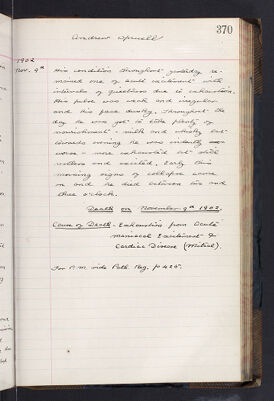 370
Andrew
1902
Nov. 9th His condition throughout yesterday re-
mained one of acute excitement with
intervals of quietness due to exhaustion.
His pulse was weak and irregular
and his face dusky. Throughout the
day he was got to take plenty of
nourishment - milk and whisky but
towards evening he was evidently
worse - more exhausted but still
restless and excited. Early this
morning signs of collapse came
on and he died between two and
three o'clock.
Death on November 9th 1902.
Cause of Death - Exhaustion from Acute
Maniacal Excitement &
Cardiac Disease (Mitral).
For P.M. vide Path. Reg. p 425.